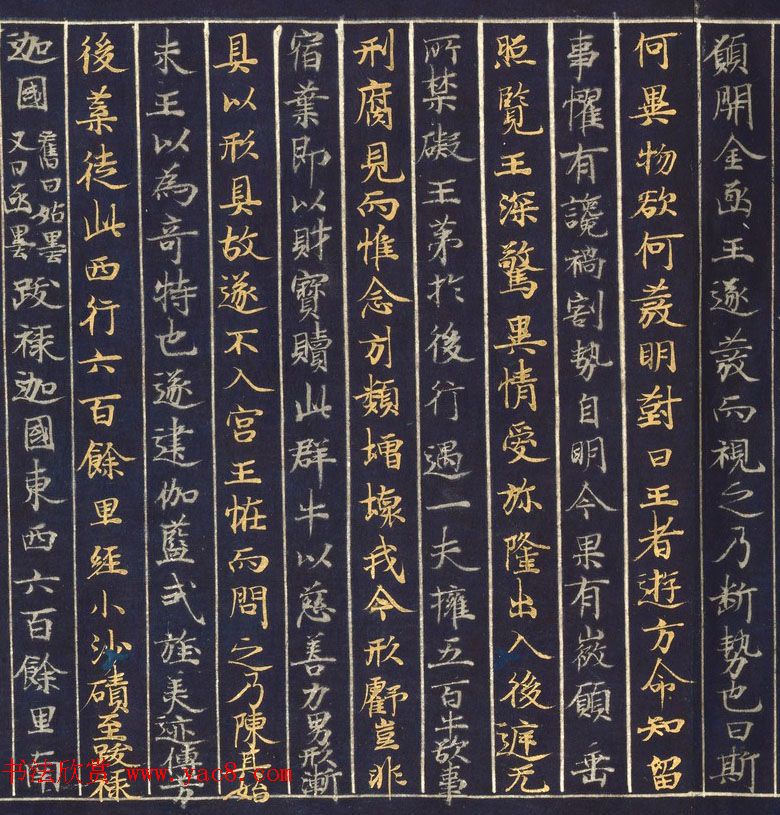 願開金函王遂發而視之乃斷勢也曰斯
何異物欲何發明對曰王者遊方命知留
事懼有讒禍割勢自明今果有徵願垂
照覽王深驚異情愛弥隆出入後庭无
所禁礙王弟於後行遇一夫擁五百牛欲事
刑腐見而惟念引類增懷我今形虧豈非
宿業即以財寶贖此群牛以慈善力男形漸
具以形具故遂不入宮王恠而問之乃陳其始
末王以為奇特也遂建伽藍式旌美迹傳芳
後葉從此西行六百餘里經小沙磧至跋祿
迦國舊曰姑墨又曰亟墨跋祿迦國東西六百餘里南
书法欣赏 www.yac8.com